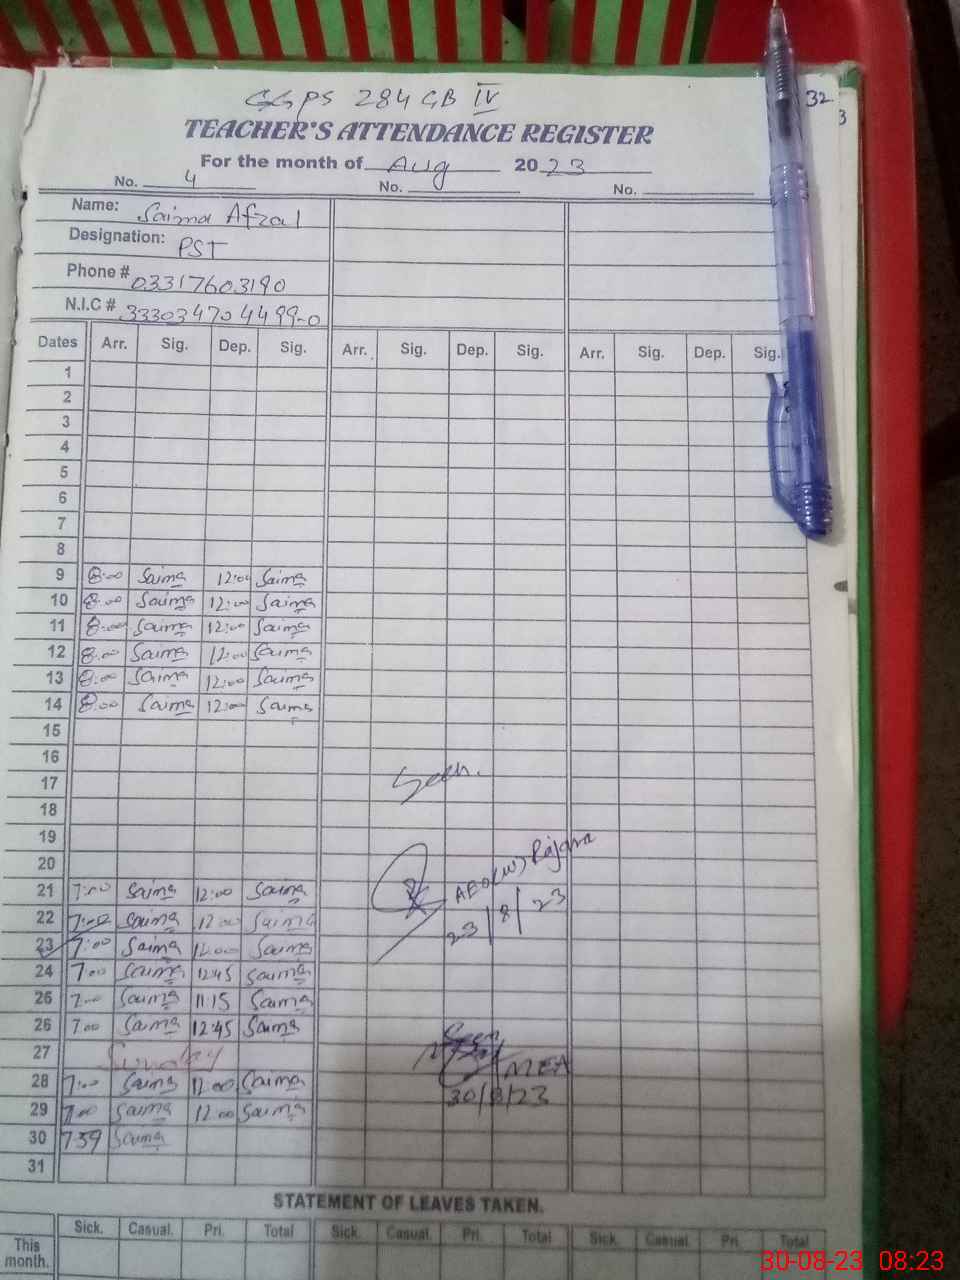 GGPS 284 GB IV
32
3
TEACHER'S ATTENDANCE REGISTER
For the month of Aug 2023
No. 4 No. No.
Name: Saima Afzal
Designation: PST
Phone # 03317603190
N.I.C # 333034704499-0
Dates Arr. Sig. Dep. Sig. Arr. Sig. Dep. Sig. Arr. Sig. Dep. Sig.
1
2
3
4
5
6
7
8
9 8:00 Saima 12:00 Saima
10 8:00 Saima 12:00 Saima
11 8:00 Saima 12:00 Saima
12 8:00 Saima 12:00 Saima
13 8:00 Saima 12:00 Saima
14 8:00 Saima 12:00 Saima
15
16
17 Seen.
18
19
20
21 7:00 Saima 12:00 Saima AEO(W) Rajana
22 7:00 Saima 12:00 Saima 23/8/23
23 7:00 Saima 12:00 Saima
24 7:00 Saima 12:45 Saima
26 7:00 Saima 11:15 Saima
26 7:00 Saima 12:45 Saima
27 Sunday MEA
28 7:00 Saima 12:00 Saima 30/8/23
29 7:00 Saima 12:00 Saima
30 7:59 Saima
31
STATEMENT OF LEAVES TAKEN.
Sick. Casual. Pri. Total Sick. Casual. Pri. Total Sick. Casual. Pri. Total
This month.
30-08-23 08:23